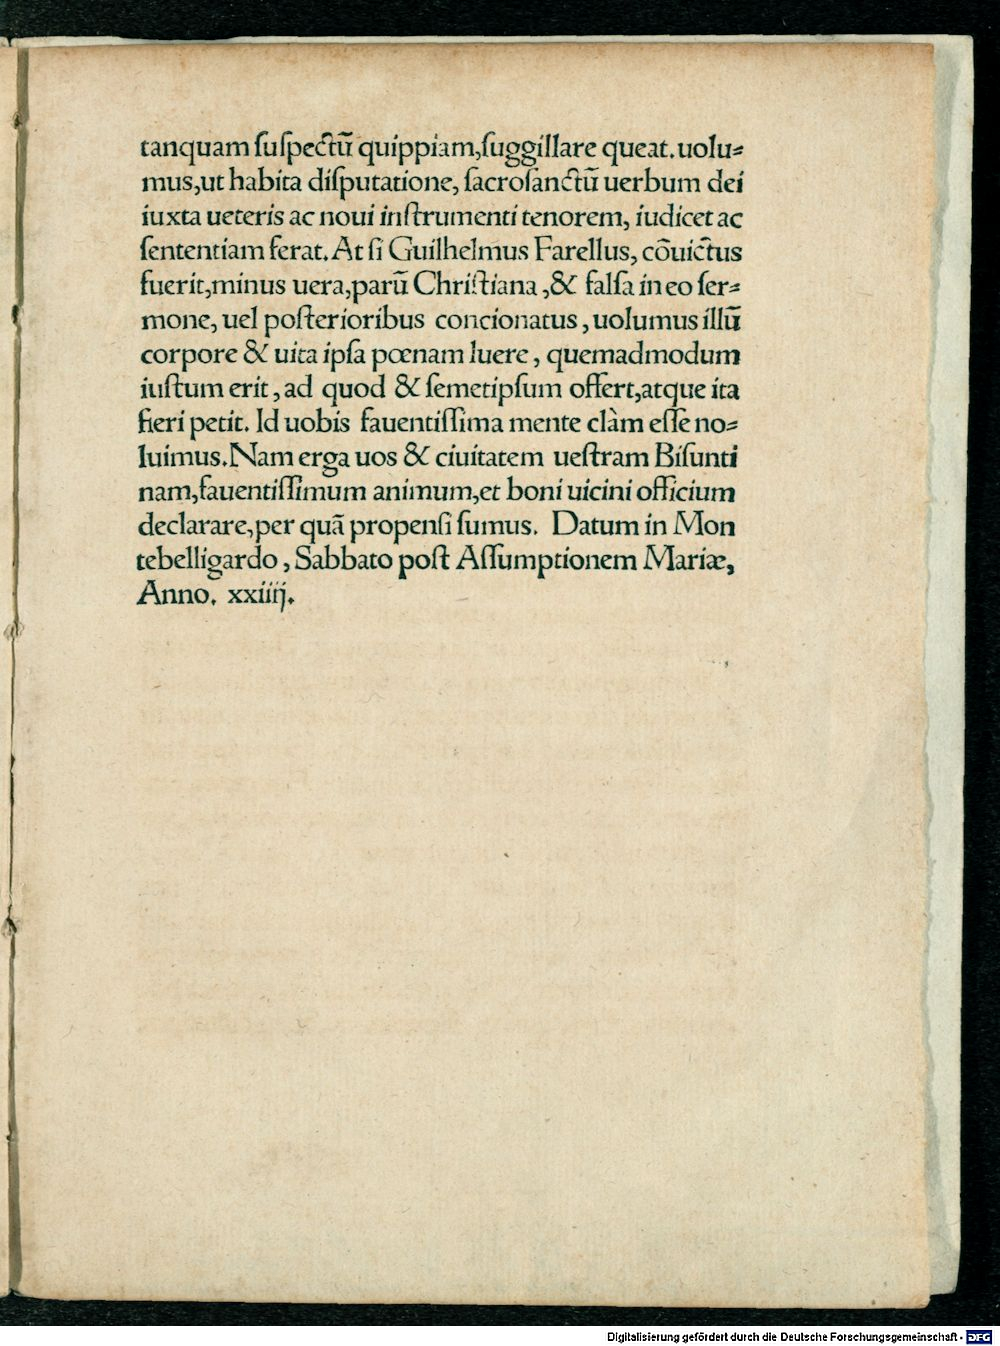 tanquam ſuſpectũ quippiam,ſuggillare queat.uolu⸗
mus,ut habita diſputatione, ſacroſanctũ uerbum dei
iuxta ueteris ac noui inſtrumenti tenorem, iudicet ac
ſententiam ferat. At ſi Guilhelmus Farellus, cõuictus
fuerit,minus uera,parũ Chriſtiana ,& falſa in eo ſer⸗
mone, uel poſterioribus concionatus , uolumus illũ
corpore & uita ipſa pœnam luere , quemadmodum
iuſtum erit , ad quod & ſemetipſum offert,atque ita
fieri petit. Id uobis fauentiſſima mente clàm eſſe no⸗
luimus.Nam erga uos & ciuitatem ueſtram Biſunti
nam,fauentiſſimum animum,et boni uicini officium
declarare,per quã propenſi ſumus. Datum in Mon
tebelligardo , Sabbato poſt Aſſumptionem Mariæ,
Anno. xxiiij.
Digitalisierung gefördert durch die Deutsche Forschungsgemeinschaft - DFG